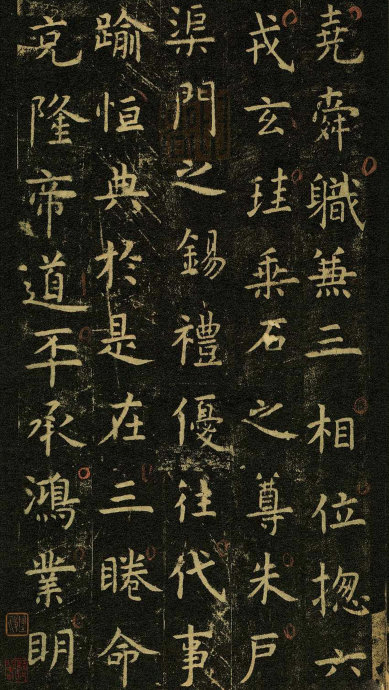 堯舜職兼三相位揔六
戎玄珪乘石之尊朱戶
渠門之錫禮優往代事
踰恒典於是在三睠命
克隆帝道丕承鴻業明